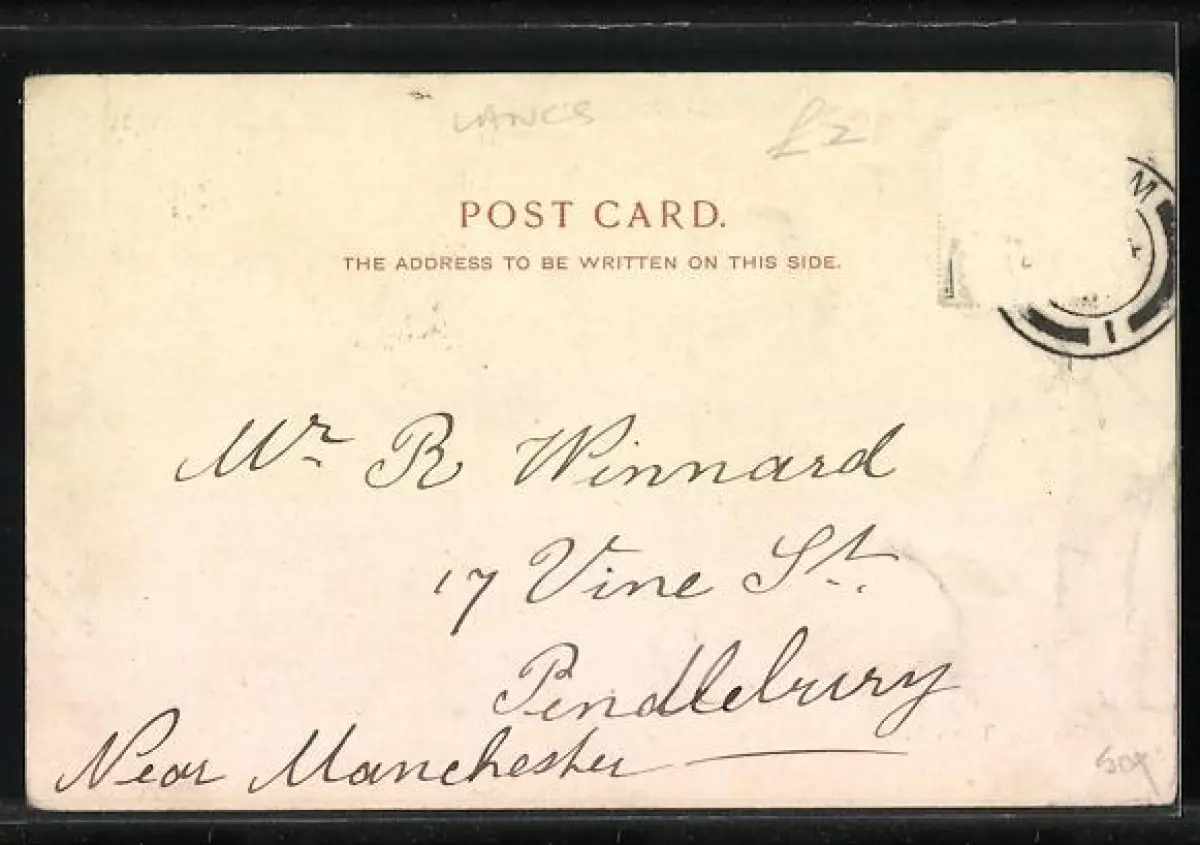 LANCS
£2
POST CARD.
THE ADDRESS TO BE WRITTEN ON THIS SIDE.
M
1
Mr R Winnard
17 Vine St.
Pendlebury
Near Manchester